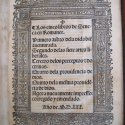 Los cinco libros de Sene
ca en Romance.
Primero libro de la vida bie
auenturada.
Segundo de las siete artes libe
rales.
Tercero de los preceptos y do
ctrinas.
Quarto de la prouidencia de
dios.
Quinto de la mesma prouiden
cia de dios.
Agora nueuamente impresso
corregido y emendado.
Año de. M.D.XXX.